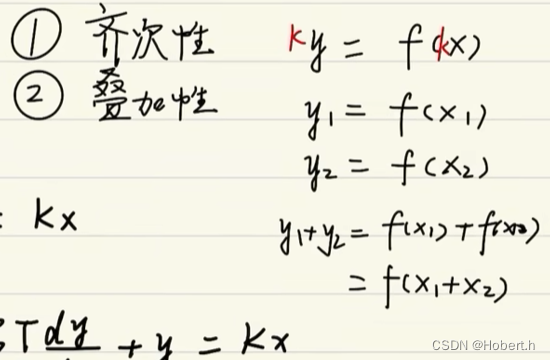 ① 齐次性 ky = f(kx)
② 叠加性
y₁ = f(x₁)
y₂ = f(x₂)
: kx
y₁+y₂ = f(x₁)+f(x₂)
= f(x₁+x₂)
T dy + y = kx
CSDN @Hobert.h